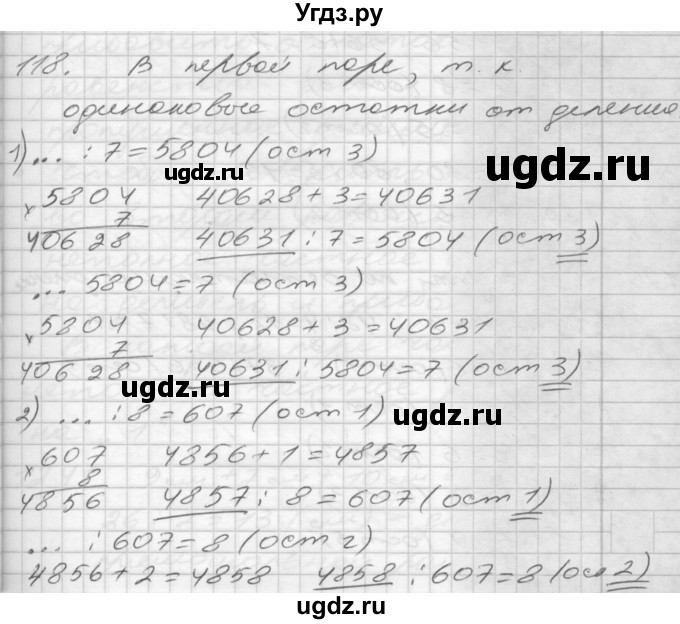 Угдз.ру
118. В первой паре, т. к.
одинаковые остатки от деления.
1) ... : 7 = 5804 (ост 3)
угдз.ру
ugdz.ru
× 5804   40628 + 3 = 40631
7
40628   40631 : 7 = 5804 (ост 3)
... 5804 = 7 (ост 3)
× 5804   40628 + 3 = 40631
7
40628   40631 : 5804 = 7 (ост 3)
ugdz.ru
2) ... : 8 = 607 (ост 1)
ugdz.ru
× 607   4856 + 1 = 4857
8
4856   4857 : 8 = 607 (ост 1)
... : 607 = 8 (ост 2)
4856 + 2 = 4858   4858 : 607 = 8 (ост 2)
ugdz.ru